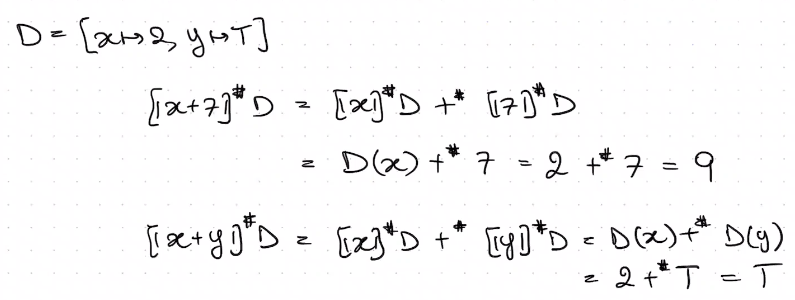 D = [x ↦ 2, y ↦ T]
[[x+7]]^# D = [[x]]^# D +^# [[7]]^# D
= D(x) +^# 7 = 2 +^# 7 = 9
[[x+y]]^# D = [[x]]^# D +^# [[y]]^# D = D(x) +^# D(y)
= 2 +^# T = T